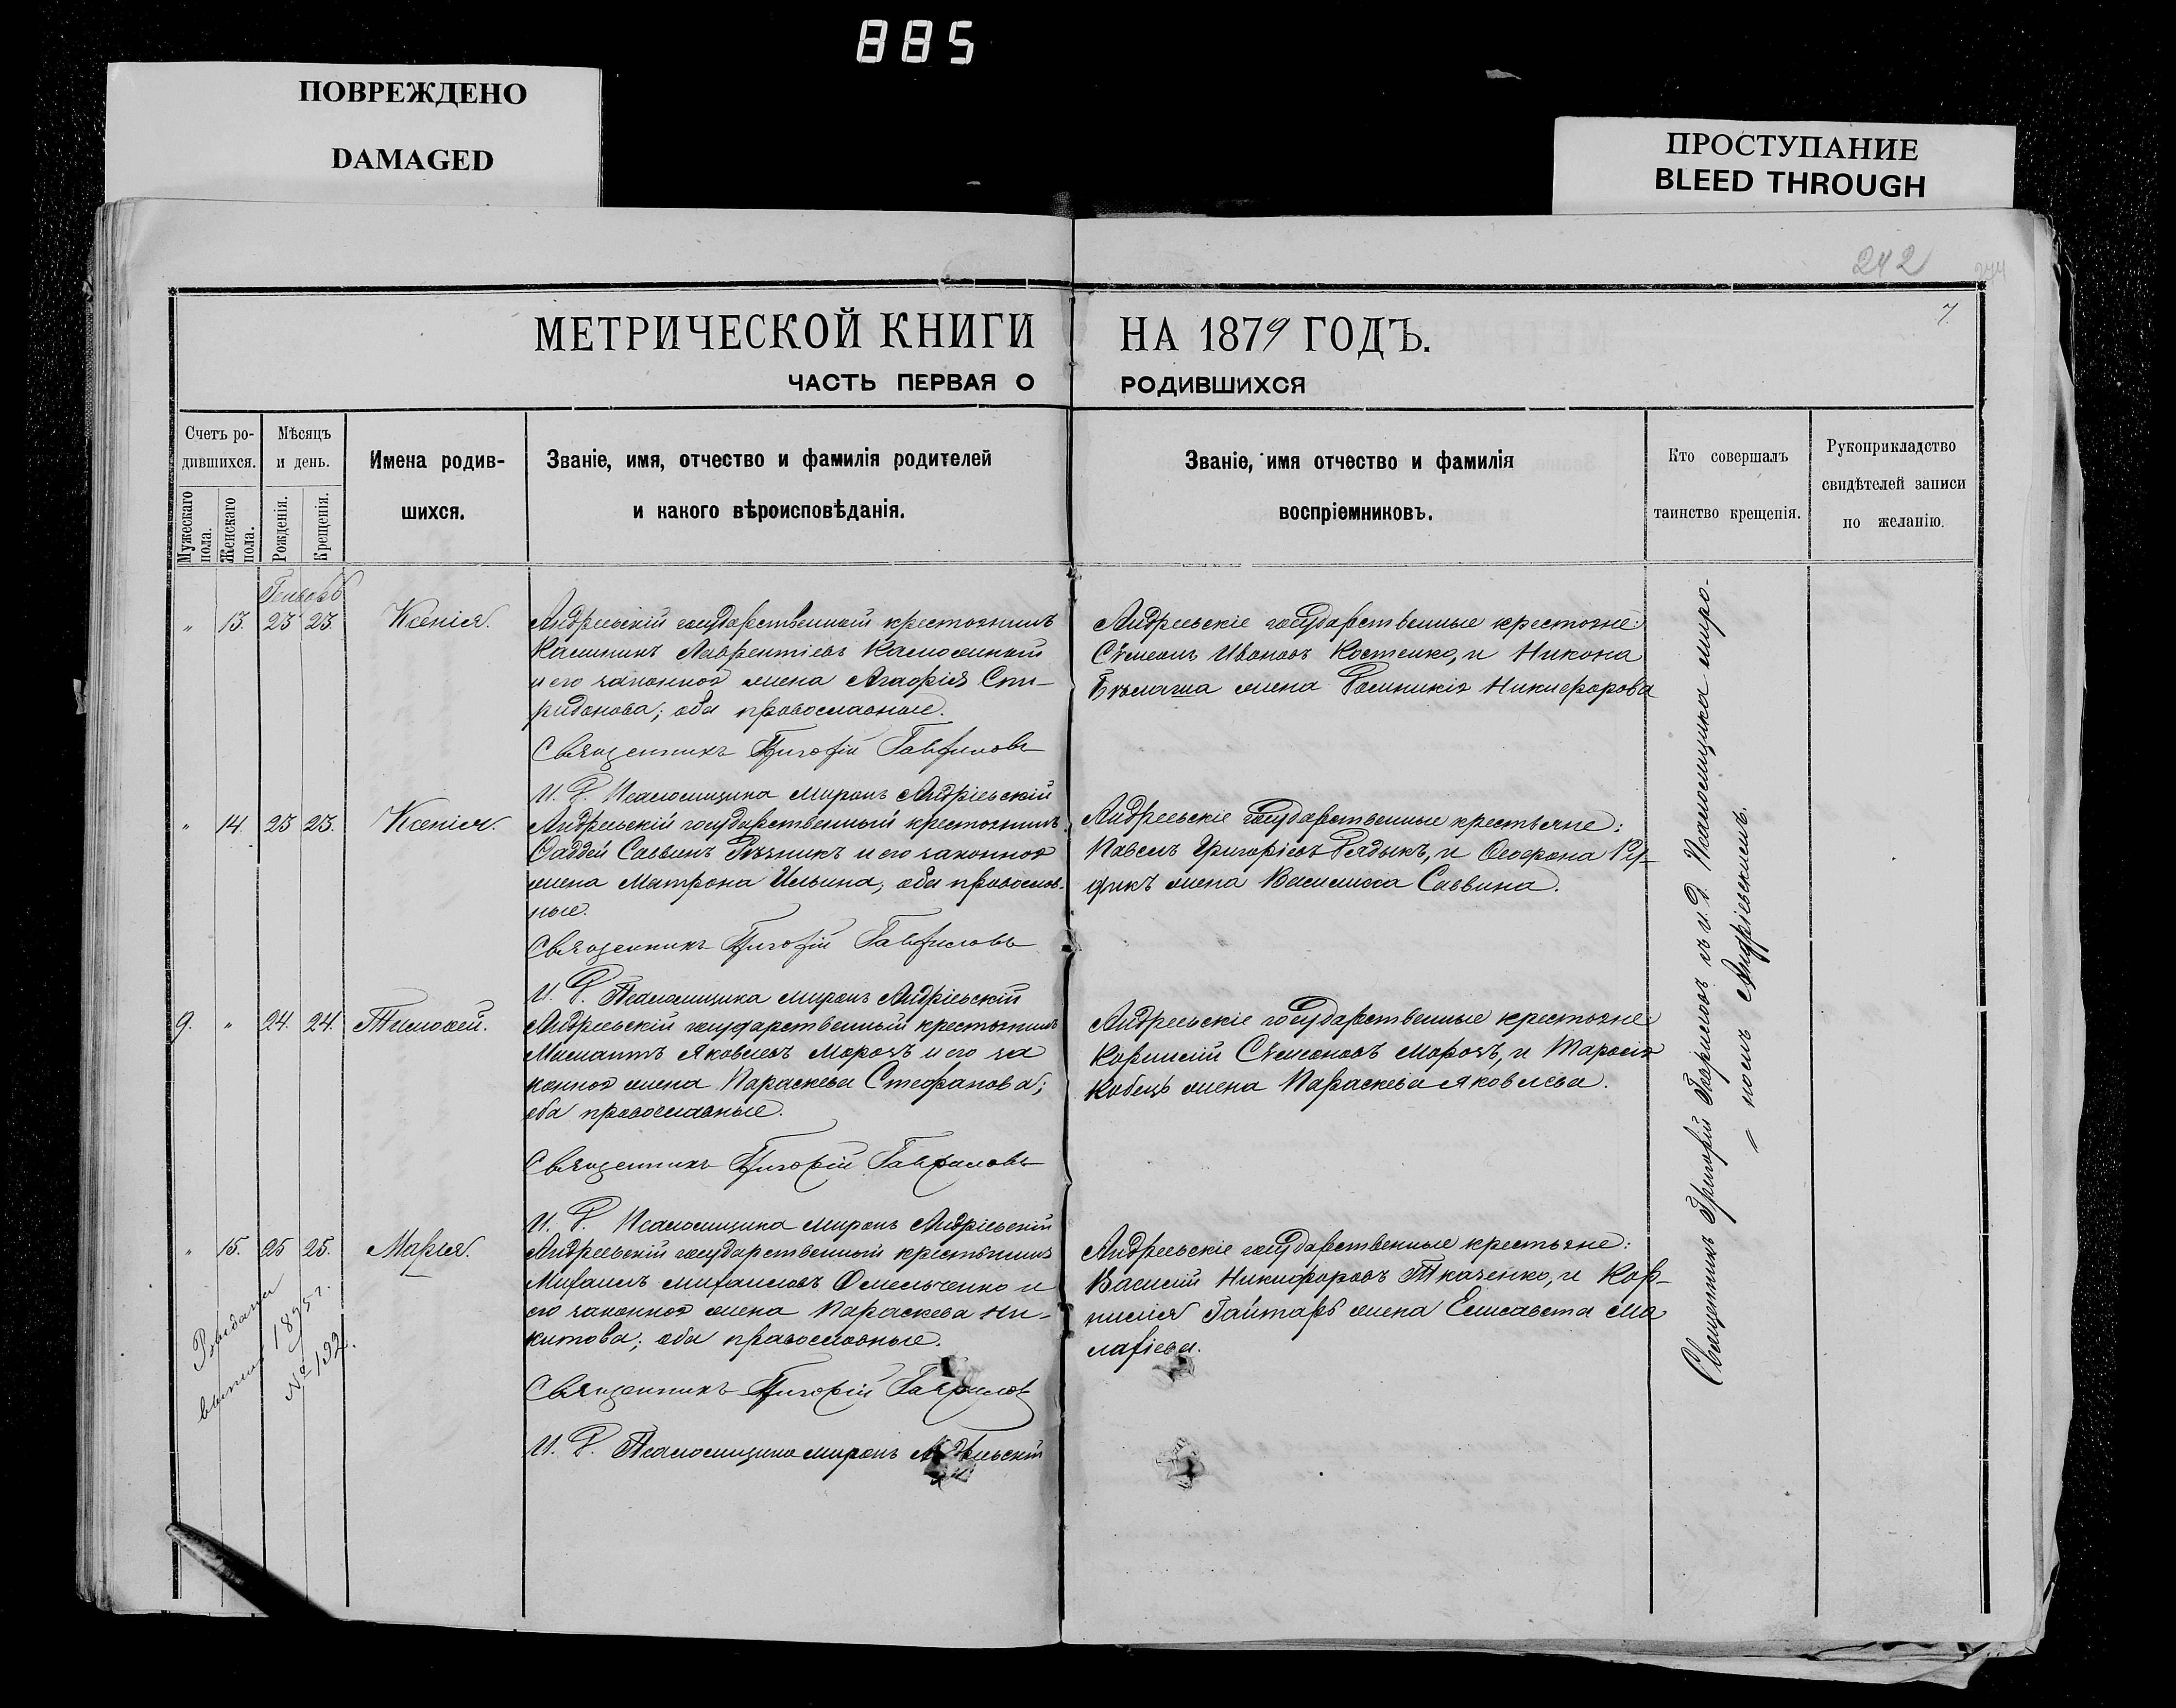 885
ПОВРЕЖДЕНО
DAMAGED
ПРОСТУПАНИЕ
BLEED THROUGH
242
7.
МЕТРИЧЕСКОЙ КНИГИ НА 1879 ГОДЪ.
ЧАСТЬ ПЕРВАЯ О РОДИВШИХСЯ
Счетъ ро-
дившихся.
Мужескаго пола.
Женскаго пола.
Мѣсяцъ
и день.
Рожденія.
Крещенія.
Имена родив-
шихся.
Званіе, имя, отчество и фамилія родителей
и какого вѣроисповѣданія.
Званіе, имя отчество и фамилія
воспріемниковъ.
Кто совершалъ
таинство крещенія.
Рукоприкладство
свидѣтелей записи
по желанію.
" 13. 23 23. Ксенія.
Андреевскій государственный крестьянинъ
Лаврентіевъ
и его законная жена Агафія Спи-
ридонова; оба православные.
Священникъ Григорій Гавриловъ
И. Д. Псаломщика Миронъ Андріевскій
Андреевскіе государственные крестьяне:
Сѵмеонъ Ивановъ Костенко, и Никона
жена Никифорова
" 14. 23 23. Ксенія.
Андреевскій государственный крестьянинъ
Фаддей Саввинъ и его законная
жена Матрона Ильина, оба православ-
ные.
Священникъ Григорій Гавриловъ
И. Д. Псаломщика Миронъ Андріевскій
Андреевскіе государственные крестьяне:
Павелъ Григоріевъ и
жена Василисса Саввина.
9. " 24. 24. Тимоѳей.
Андреевскій государственный крестьянинъ
Яковлевъ Морозъ и его за
конная жена Параскева Стефанова;
оба православные.
Священникъ Григорій Гавриловъ
И. Д. Псаломщика Миронъ Андріевскій
Андреевскіе государственные крестьяне
Корнилій Сѵмеоновъ Морозъ, и Тарасія
Кобецъ жена Параскева Яковлева.
" 15. 25 25. Марія.
Андреевскій государственный крестьянинъ
Михаилъ Михаиловъ Омельченко и
его законная жена Параскева Ни-
китова; оба православные.
Священникъ Григорій Гавриловъ
И. Д. Псаломщика Миронъ
Андреевскіе государственные крестьяне:
Василій Никифоровъ Ткаченко, и Кор-
нилія Гайтаръ жена Елисавета Ма
лафіева.
Священникъ Григорій Гавриловъ съ и. д. Псаломщика Миро-
номъ Андріевскимъ.
1895 г.
№ 132.